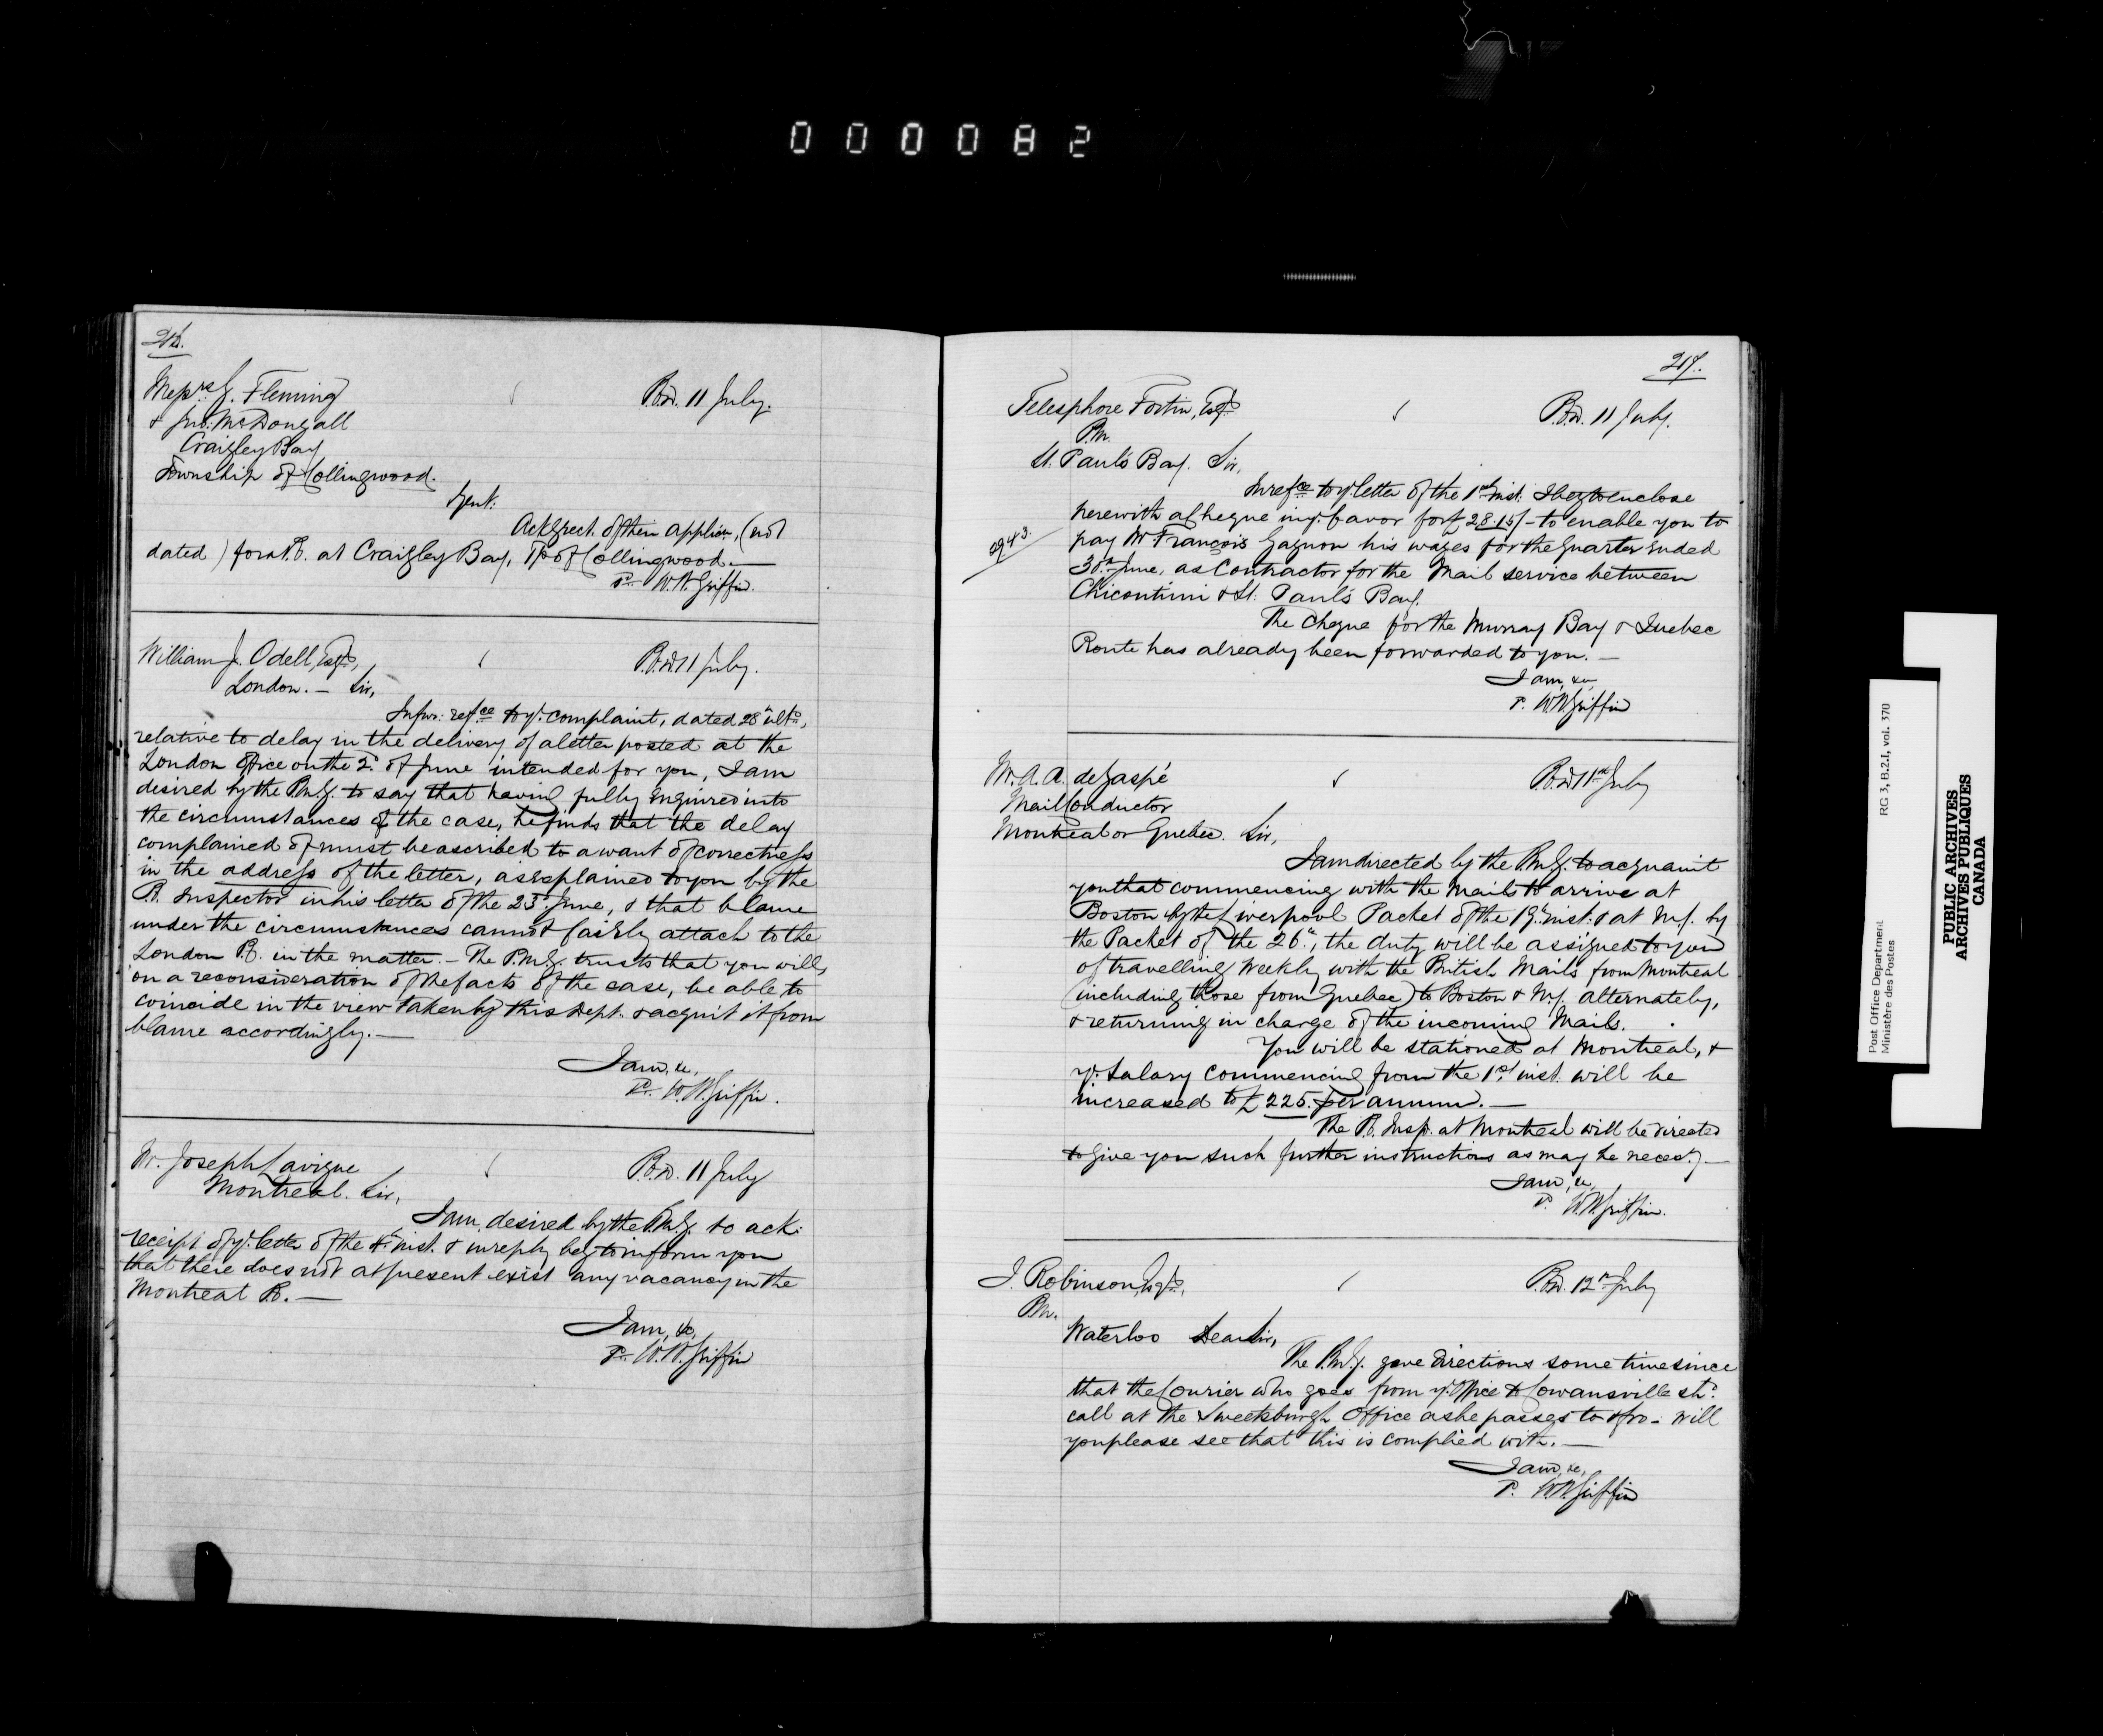 000082
216.
Messrs. J. Fleming
& Jno. McDougall
Craigley Bay
Township of Collingwood.
P.O.D. 11 July.
Gent:
Ackg rect. of their applicn, (not
dated) for a P.O. at Craigley Bay, Tp of Collingwood.—
P. W.H. Griffin.
William J. Odell, Esqre,
London.— Sir,
P.O.D. 11 July.
In fur: refce to yr. complaint, dated 28th ulto,
relative to delay in the delivery of a letter posted at the
London Office on the 2d. of June intended for you, I am
desired by the P.M.G. to say that having fully enquired into
the circumstances of the case, he finds that the delay
complained of must be ascribed to a want of correctness
in the address of the letter, as explained to you by the
P.O. Inspector in his letter of the 23d June, & that blame
under the circumstances cannot fairly attach to the
London P.O. in the matter.— The P.M.G. trusts that you will,
on a reconsideration of the facts of the case, be able to
coincide in the view taken by this Dept. & acquit it from
blame accordingly.—
I am, &c,
P. W.H. Griffin.
Mr. Joseph Lavigne
Montreal. Sir,
P.O.D. 11 July
I am desired by the P.M.G. to ack:
receipt of yr. letter of the inst. & in reply beg to inform you
that there does not at present exist any vacancy in the
Montreal P.O.—
I am, &c,
P. W.H. Griffin
217.
Telesphore Fortin, Esqre
P.M.
St. Paul's Bay. Sir,
P.O.D. 11 July.
In refce to yr letter of the 1st inst. I beg to enclose
herewith a Cheque in yr. favor for £28.15/- to enable you to
2943.
pay Mr. François Gagnon his wages for the Quarter ended
30th June, as Contractor for the Mail service between
Chicoutimi & St. Paul's Bay.
The Cheque for the Murray Bay & Quebec
Route has already been forwarded to you.—
I am, &c,
P. W.H. Griffin
Mr. A. A. deGaspé
Mail Conductor
Montreal or Quebec. Sir,
P.O.D 11th July
I am directed by the P.M.G. to acquaint
you that commencing with the Mails to arrive at
Boston by the Liverpool Packet of the 19th inst. & at N.Y. by
the Packet of the 26th, the duty will be assigned to you
of travelling weekly with the British Mails from Montreal
(including those from Quebec) to Boston & N.Y. alternately,
& returning in charge of the incoming Mails.
You will be stationed at Montreal, &
yr. Salary commencing from the 1st inst. will be
increased to £225. per annum.—
The P.O. Insp. at Montreal will be directed
to give you such further instructions as may be necesy.—
I am, &c,
P. W.H. Griffin.
J. Robinson, Esqre,
P.M.
Waterloo Dear Sir,
P.O.D. 12th July
The P.M.G. gave directions some time since
that the Courier who goes from yr. Office to Cowansville shd.
call at the Sweetsburgh Office as he passes to & fro— Will
you please see that this is complied with.—
I am, &c,
P. W.H. Griffin
Post Office Department
Ministère des Postes
RG 3, B.2.I, vol. 370
PUBLIC ARCHIVES
ARCHIVES PUBLIQUES
CANADA